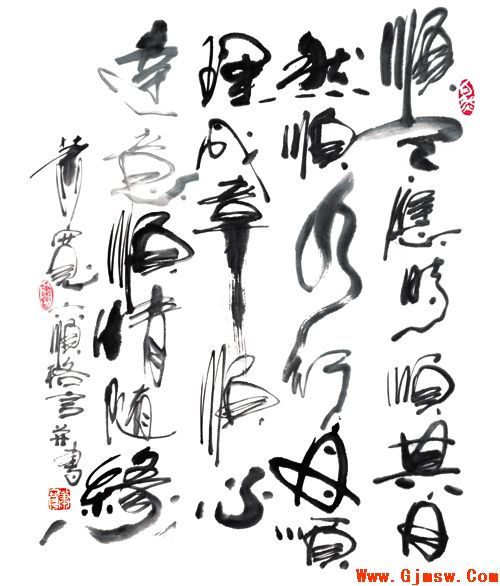 順天應時順其自
然順水行舟順
理成章順心
達意順情隨緣
六順格言并書
Www.Gjmsw.Com